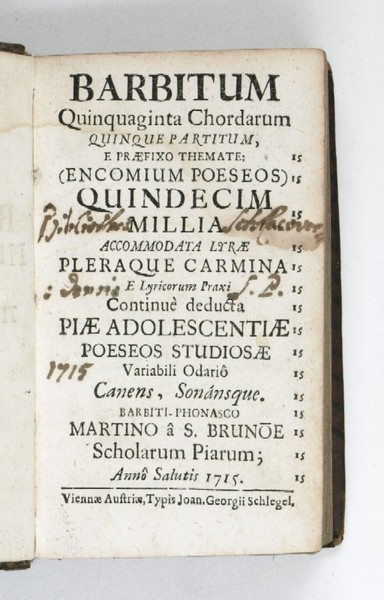 BARBITUM
Quinquaginta Chordarum
QUINQUE PARTITUM,
E PRÆFIXO THEMATE: 15
(ENCOMIUM POESEOS) 15
QUINDECIM
15
MILLIA
ACCOMMODATA LYRÆ 15
PLERAQUE CARMINA 15
E Lyricorum Praxi S. P. 15
Continuè deducta 15
PIÆ ADOLESCENTIÆ 15
POESEOS STUDIOSÆ 15
1715 Variabili Odariô 15
Canens, Sonánsque. 15
BARBITI-PHONASCO 15
MARTINO â S. BRUNŌE 15
Scholarum Piarum; 15
Annô Salutis 1715. 15
Viennæ Austriæ, Typis Joan. Georgii Schlegel.